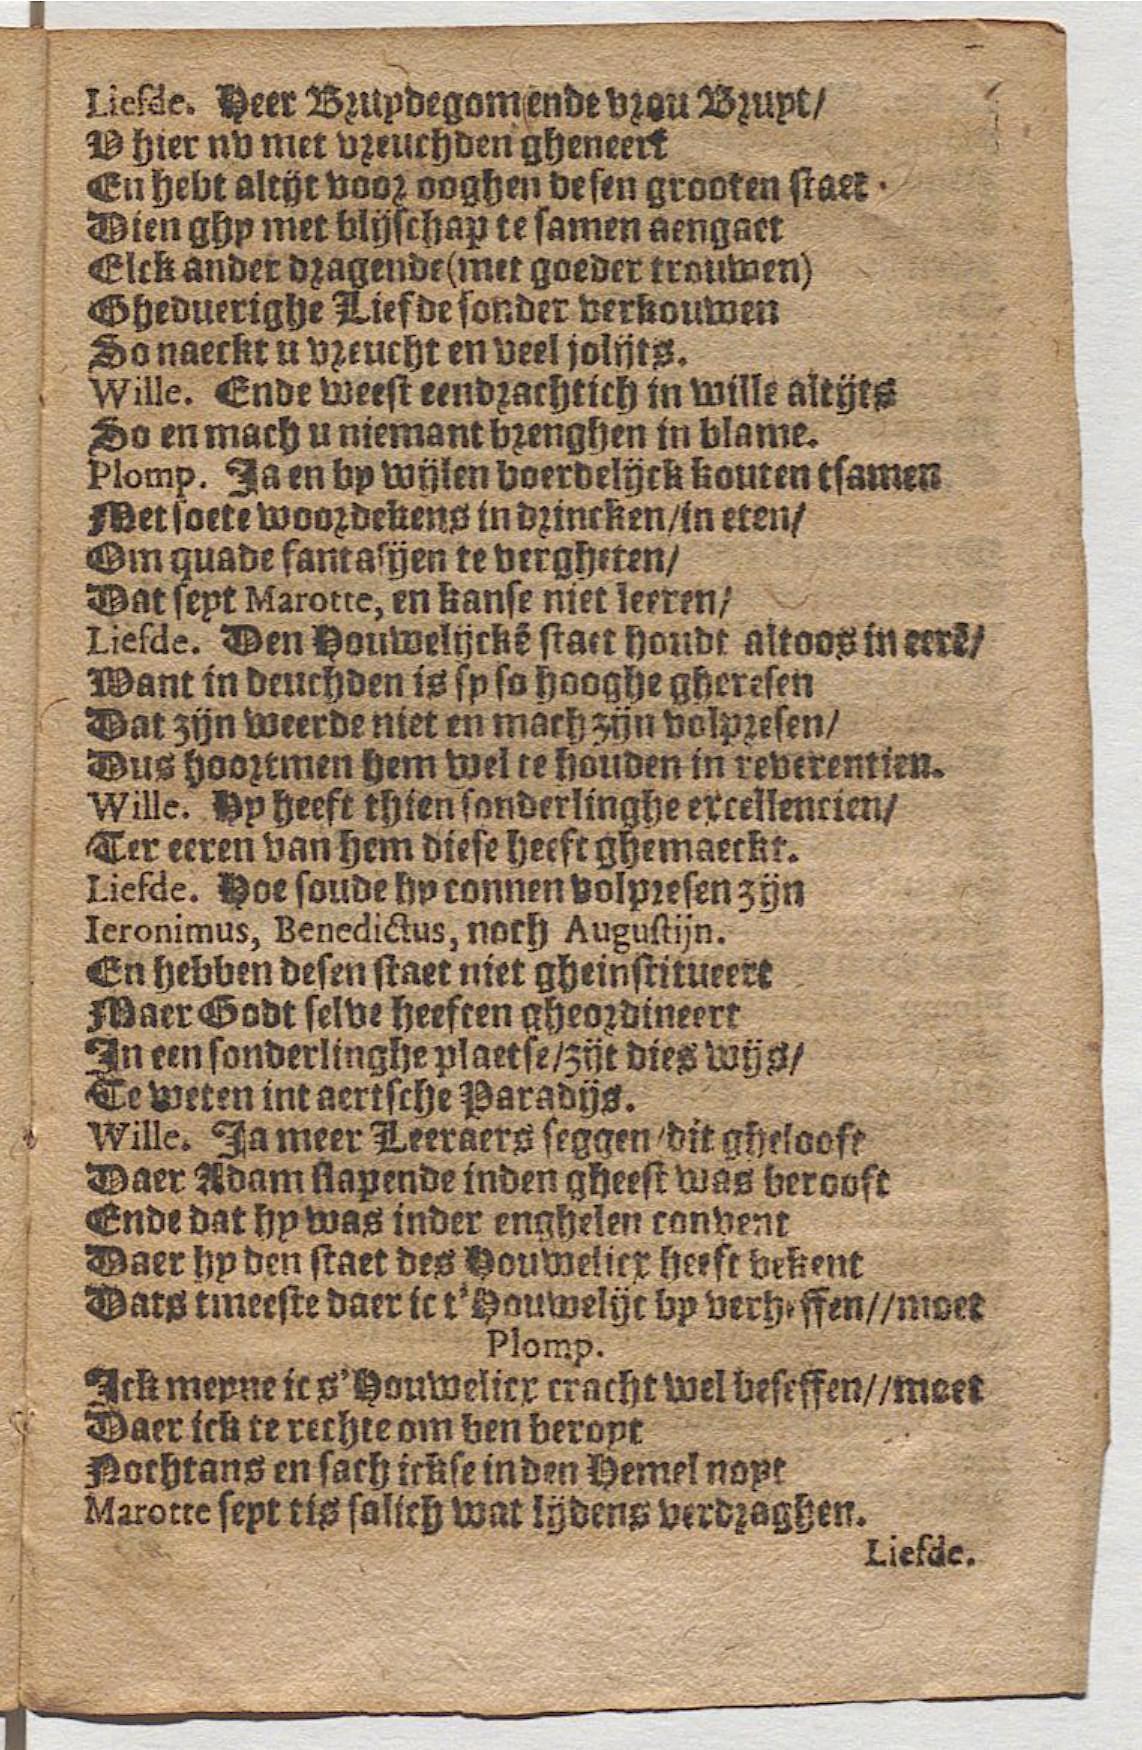 Liefde. Heer Bruydegom ende vrou Bruyt/
V hier nv met vreuchden gheneert
En hebt altijt voor ooghen desen grooten staet.
Dien ghy met blijschap te samen aengaet
Elck ander dragende (met goeder trouwen)
Gheduerighe Liefde sonder verkouwen
So naeckt u vreucht en veel jolijts.
Wille. Ende weest eendrachtich in wille altijts
So en mach u niemant brenghen in blame.
Plomp. Ja en by wijlen boerdelijck kouten tsamen
Met soete woordekens in drincken/in eten/
Om quade fantasijen te vergheten/
Dat seyt Marotte, en kanse niet leeren/
Liefde. Den Houwelijckē staet houdt altoos in eerē/
Want in deuchden is sy so hooghe gheresen
Dat zijn weerde niet en mach zijn volpresen/
Dus hoortmen hem wel te houden in reverentien.
Wille. Hy heeft thien sonderlinghe excellencien/
Ter eeren van hem diese heeft ghemaeckt.
Liefde. Hoe soude hy connen volpresen zijn
Ieronimus, Benedictus, noch Augustijn.
En hebben desen staet niet gheinstitueert
Maer Godt selve heeften gheordineert
In een sonderlinghe plaetse/zijt dies wijs/
Te weten int aertsche Paradijs.
Wille. Ja meer Leeraers seggen/dit ghelooft
Daer Adam slapende inden gheest was berooft
Ende dat hy was inder enghelen convent
Daer hy den staet des Houwelicx heeft bekent
Dats tmeeste daer ic t'Houwelijc by verheffen//moet
Plomp.
Ick meyne ic s'Houwelicx cracht wel beseffen//moet
Daer ick te rechte om ben beroyt
Nochtans en sach ickse in den Hemel noyt
Marotte seyt tis salich wat lijdens verdraghen.
Liefde.